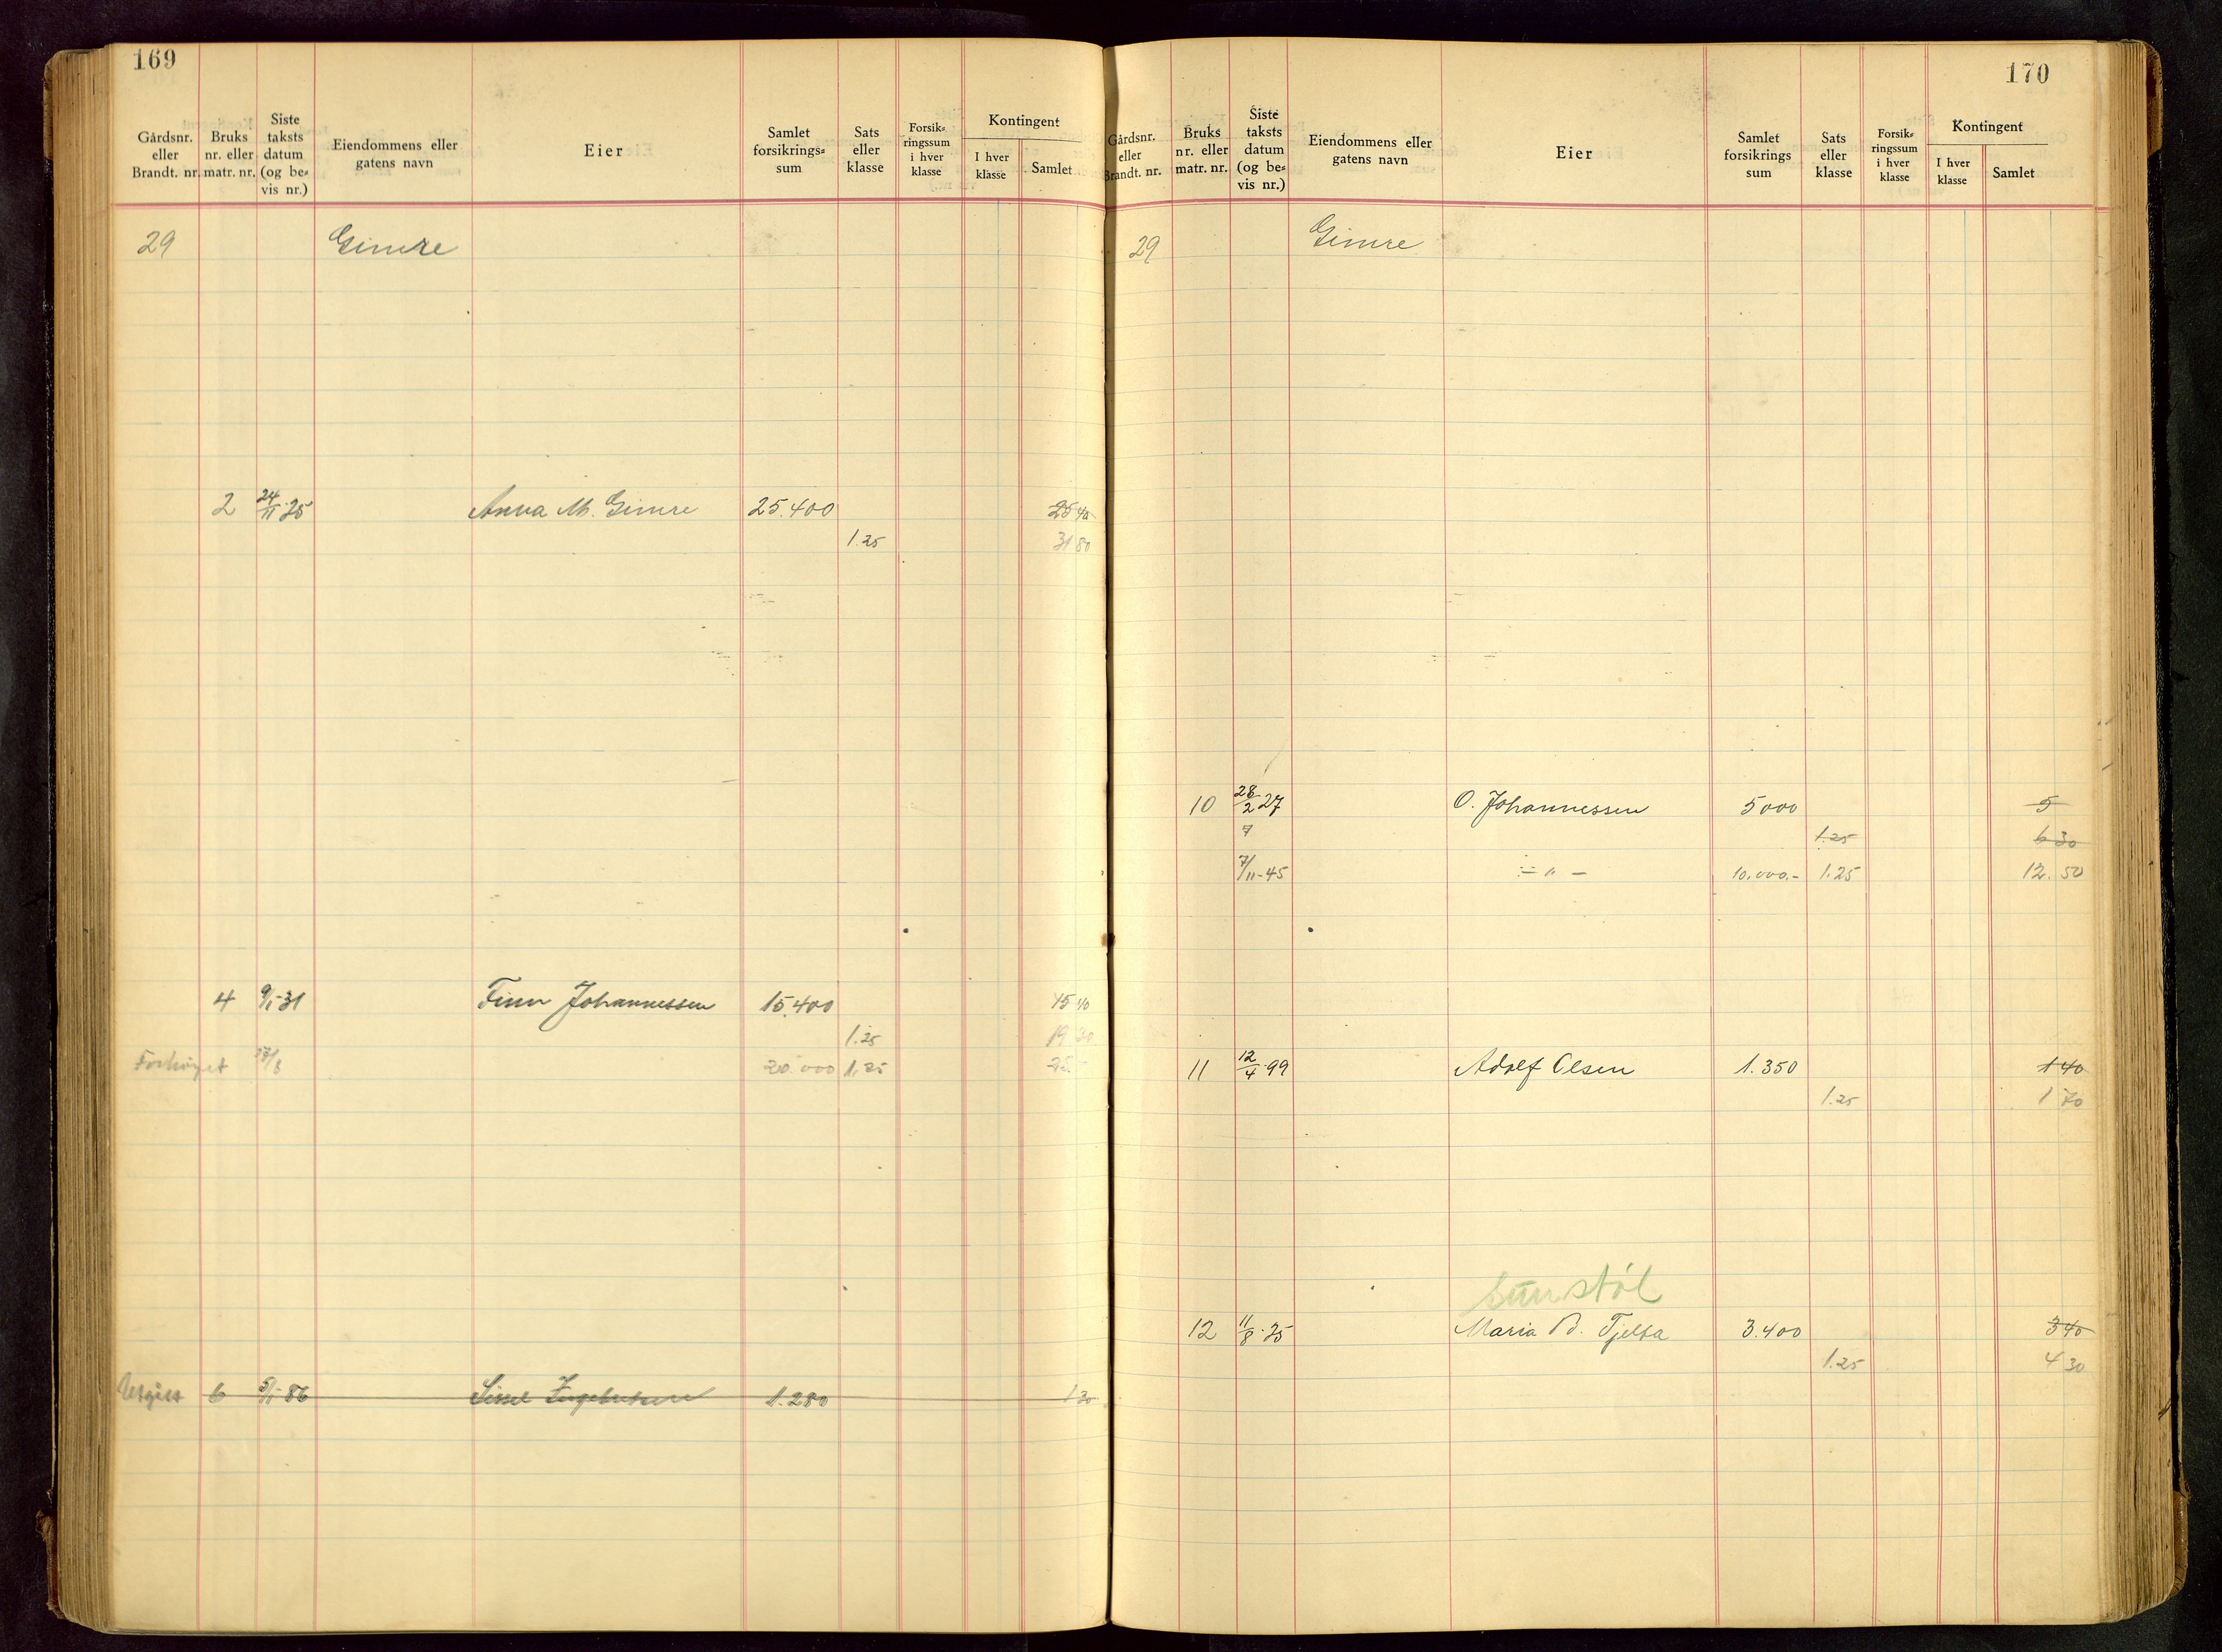 169
Gårdsnr. eller Brandt. nr. Bruks nr. eller matr. nr. Siste taksts datum (og be= vis nr.) Eiendommens eller gatens navn Eier Samlet forsikrings= sum Sats eller klasse Forsik= ringssum i hver klasse Kontingent I hver klasse Samlet
29 Gimre
2 24/11-25 Anna M. Gimre 25.400 25 40
1.25 31 80
4 9/1-31 Finn Johannessen 15.400 15 40
1.25 19 30
Forhöyet 20.000 1.25 25.-
Utgått 6 5/1-86 Sissel Ingebretsen 1.280 1 30
170
Gårdsnr. eller Brandt. nr. Bruks nr. eller matr. nr. Siste taksts datum (og be= vis nr.) Eiendommens eller gatens navn Eier Samlet forsikrings sum Sats eller klasse Forsik= ringssum i hver klasse Kontingent I hver klasse Samlet
29 Gimre
10 28/2 27 O. Johannessen 5000 5
7 1.25 6 30
7/11-45 - " - 10.000.- 1.25 12.50
11 12/4-99 Adolf Olsen 1.350 1 40
1.25 1 70
12 11/8-25 Maria B. Tjelta 3.400 3 40
1.25 4 30